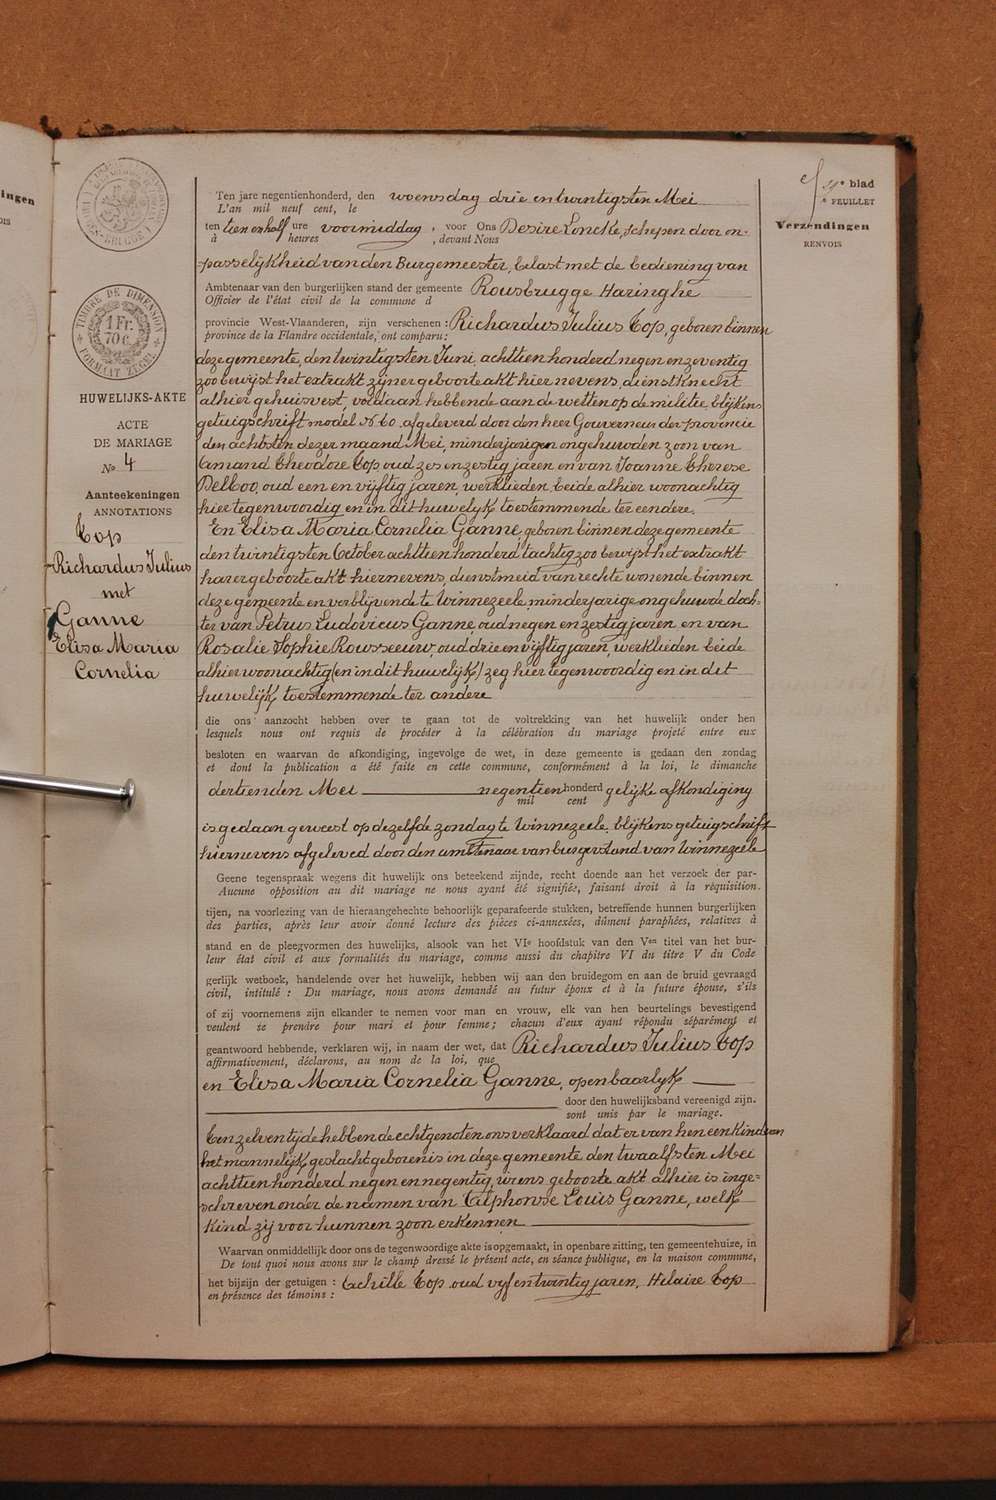 ingen
TIMBRE DE DIMENSION
1 Fr.
70 c.
FORMAAT ZEGEL
HUWELIJKS-AKTE
ACTE
DE MARIAGE
No 4
Aanteekeningen
ANNOTATIONS
Top
Richardus Julius
met
Ganne
Elisa Maria
Cornelia
blad
FEUILLET
Verzendingen
RENVOIS
Ten jare negentienhonderd, den woensdag drie en twintigsten Mei
L'an mil neuf cent, le
ten tien en half ure voormiddag, voor Ons Desiré Loncke, schepen door on-
à heures , devant Nous
passelijkheid van den Burgemeester, belast met de bediening van
Ambtenaar van den burgerlijken stand der gemeente Rousbrugge Haringhe
Officier de l'état civil de la commune d
provincie West-Vlaanderen, zijn verschenen : Richardus Julius Top, geboren binnen
province de la Flandre occidentale, ont comparu :
deze gemeente, den twintigsten Juni achttien honderd negen en zeventig
zoo bewijst het extrakt zijner geboorte akt hier nevens, dienstknecht
alhier gehuisvest, voldaan hebbende aan de wetten op de militie, blijkens
getuigschrift model No 60, afgeleverd door den heer Gouverneur der provincie
den achtsten dezer maand Mei, minderjarigen ongehuwden zoon van
Amand Theodore Top oud zes en zestig jaren en van Joanne Therese
Delboo, oud een en vijftig jaren, werklieden beide alhier woonachtig
hier tegenwoordig en in dit huwelijk toestemmende ter eendere.
En Elisa Maria Cornelia Ganne, geboren binnen deze gemeente
den twintigsten October achttien honderd tachtig zoo bewijst het extrakt
harer geboorte akt hiernevens, dienstmeid van rechte wonende binnen
deze gemeente en verblijvende te Winnezeele, minderjarige ongehuwde doch-
ter van Petrus Ludovicus Ganne, oud negen en zestig jaren en van
Rosalie Sophie Rousseeuw, oud drie en vijftig jaren, werklieden beide
alhier woonachtig (en in dit huwelijk) zeg hier tegenwoordig en in dit
huwelijk toestemmende ter andere
die ons aanzocht hebben over te gaan tot de voltrekking van het huwelijk onder hen
lesquels nous ont requis de procéder à la célébration du mariage projeté entre eux
besloten en waarvan de afkondiging, ingevolge de wet, in deze gemeente is gedaan den zondag
et dont la publication a été faite en cette commune, conformément à la loi, le dimanche
dertienden Mei negentien honderd gelijke afkondiging
mil cent
is gedaan geweest op dezelfde zondag te Winnezeele, blijkens getuigschrift
hiernevens afgeleved door den amttenaar van burgerstand van Winnezeele
Geene tegenspraak wegens dit huwelijk ons beteekend zijnde, recht doende aan het verzoek der par-
Aucune opposition au dit mariage ne nous ayant été signifiée, faisant droit à la réquisition
tijen, na voorlezing van de hieraangehechte behoorlijk geparafeerde stukken, betreffende hunnen burgerlijken
des parties, après leur avoir donné lecture des pièces ci-annexées, dûment paraphées, relatives à
stand en de pleegvormen des huwelijks, alsook van het VIe hoofdstuk van den Ven titel van het bur-
leur état civil et aux formalités du mariage, comme aussi du chapitre VI du titre V du Code
gerlijk wetboek, handelende over het huwelijk, hebben wij aan den bruidegom en aan de bruid gevraagd
civil, intitulé : Du mariage, nous avons demandé au futur époux et à la future épouse, s'ils
of zij voornemens zijn elkander te nemen voor man en vrouw, elk van hen beurtelings bevestigend
veulent se prendre pour mari et pour femme ; chacun d'eux ayant répondu séparément et
geantwoord hebbende, verklaren wij, in naam der wet, dat Richardus Julius Top
affirmativement, déclarons, au nom de la loi, que
en Elisa Maria Cornelia Ganne, openbaarlijk
door den huwelijksband vereenigd zijn.
sont unis par le mariage.
Ten zelven tijde hebben de echtgenoten ons verklaard dat er van hen een kind van
het mannelijk geslacht geboren is in deze gemeente den twaalfsten Mei
achttien honderd negen en negentig, wiens geboorte akt alhier is inge-
schreven onder de namen van Alphonse Louis Ganne, welk
kind zij voor hunnen zoon erkennen
Waarvan onmiddellijk door ons de tegenwoordige akte is opgemaakt, in openbare zitting, ten gemeentehuize, in
De tout quoi nous avons sur le champ dressé le présent acte, en séance publique, en la maison commune,
het bijzijn der getuigen : Achille Top oud vijf en twintig jaren, Hilaire Top
en présence des témoins :